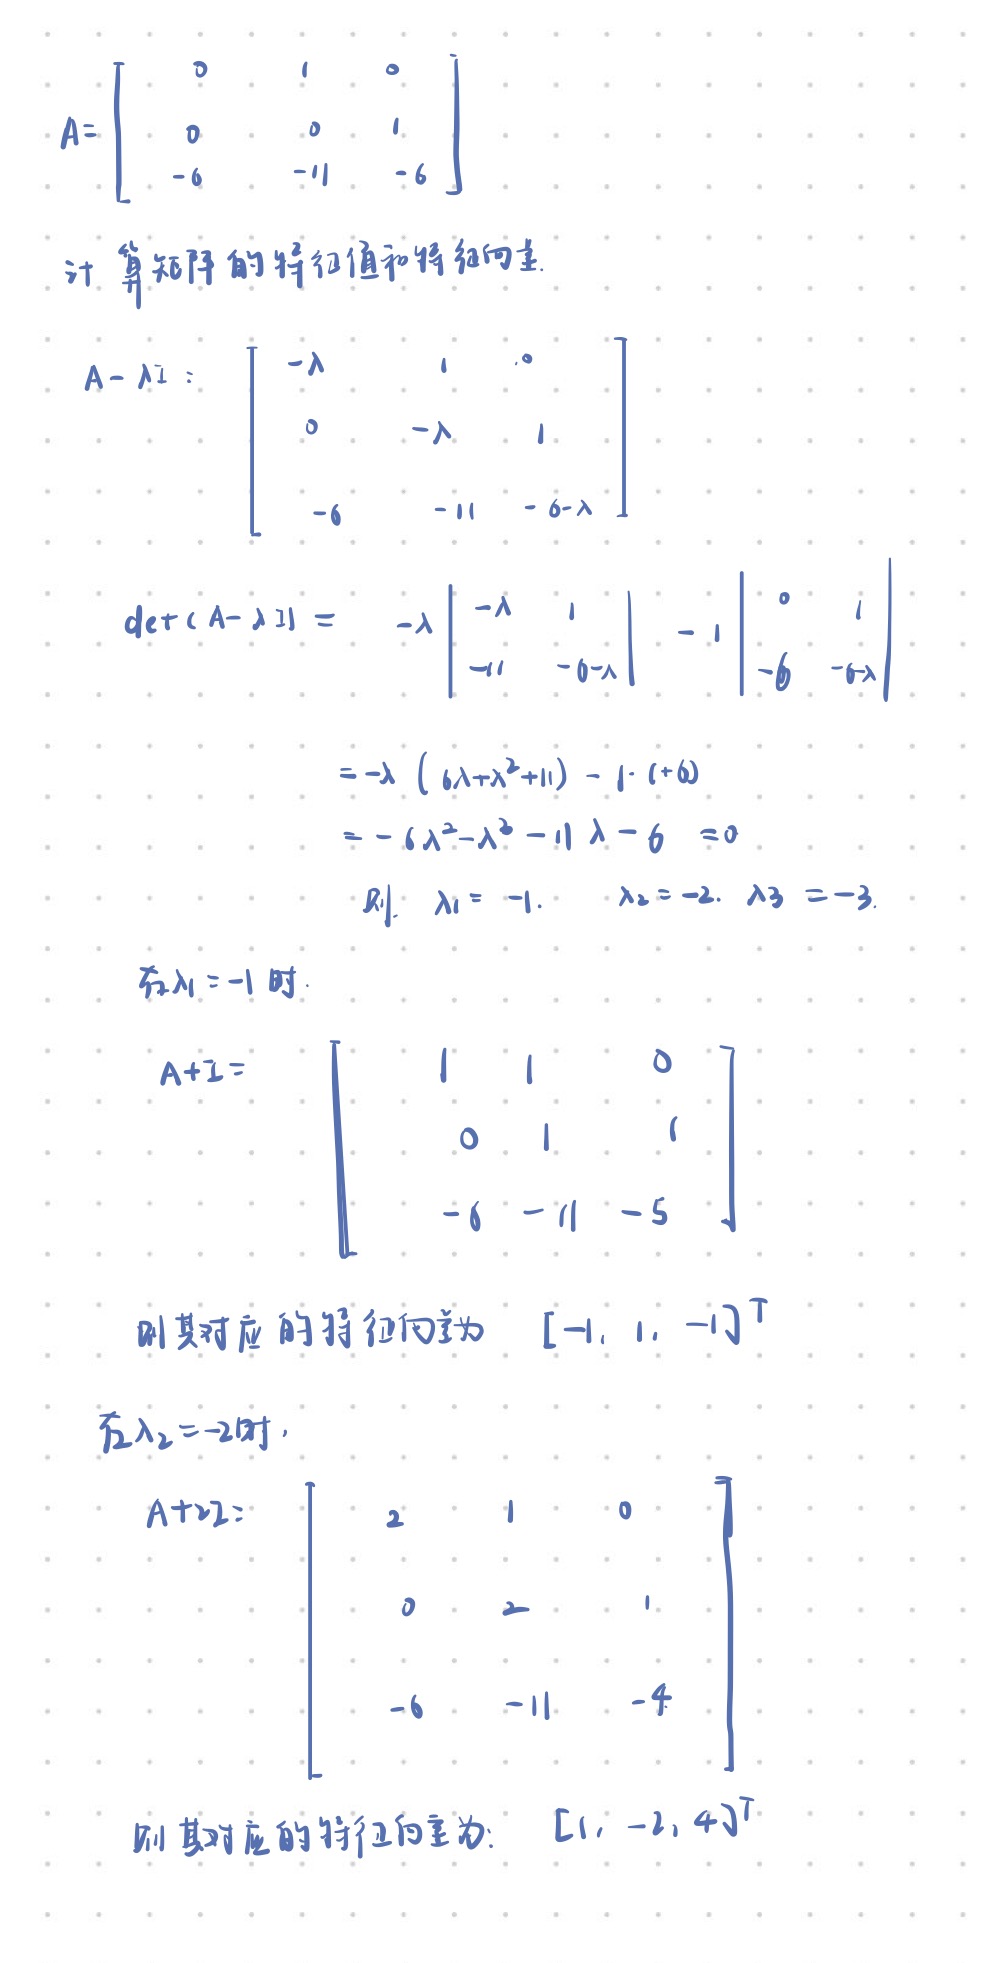 A= [ 0 1 0
0 0 1
-6 -11 -6 ]
计算矩阵的特征值和特征向量.
A-λI: [ -λ 1 0
0 -λ 1
-6 -11 -6-λ ]
det(A-λI) = -λ | -λ 1 | -1 | 0 1 |
| -11 -6-λ | | -6 -6-λ |
= -λ ( 6λ+λ²+11) - 1·(+6)
= -6λ²-λ³-11λ-6 =0
则. λ₁= -1. λ₂=-2. λ₃ =-3.
在λ₁=-1时.
A+I= [ 1 1 0
0 1 1
-6 -11 -5 ]
则其对应的特征向量为 [-1, 1, -1]ᵀ
在λ₂=-2时,
A+2I= [ 2 1 0
0 2 1
-6 -11 -4 ]
则其对应的特征向量为: [1, -2, 4]ᵀ